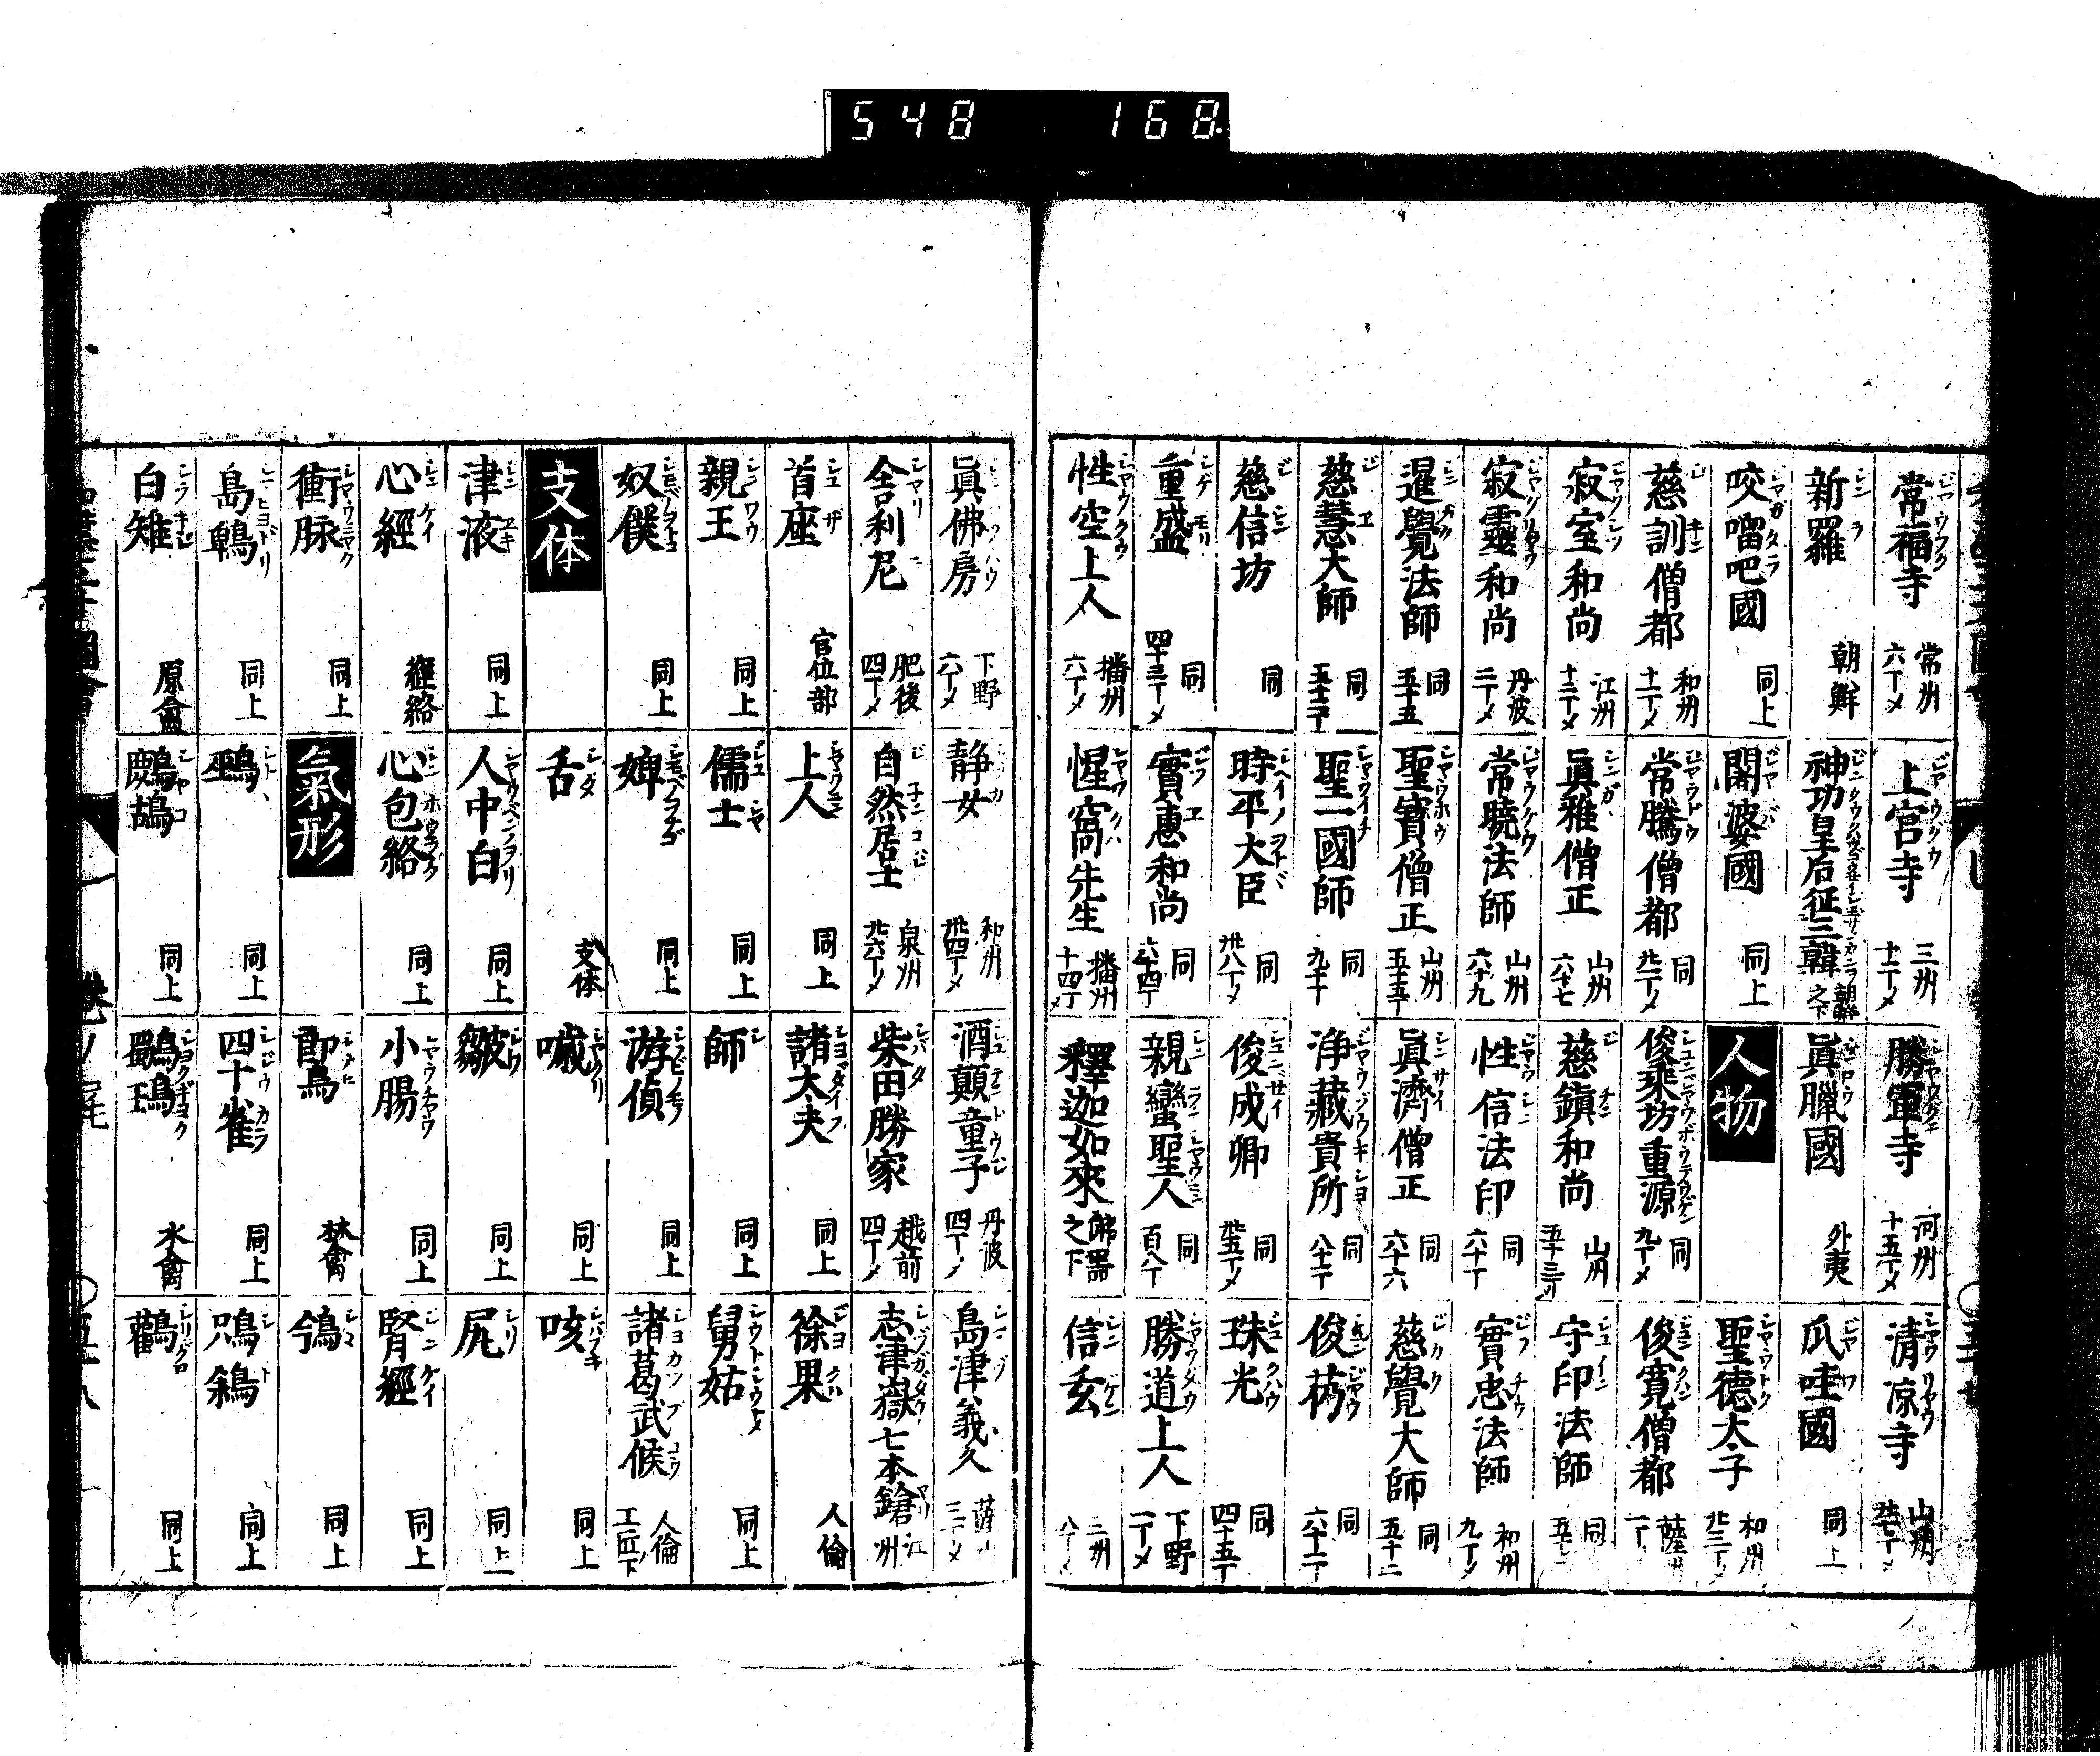 548 168
常福寺 常州 六丁メ
上宮寺 三州 十一丁メ
勝軍寺 河州 十五丁メ
清凉寺 山州
新羅 朝鮮
神功皇后征三韓 朝鮮之下
眞臘國 外夷
爪哇國 同上
咬𠺕吧國 同上
闍婆國 同上
人物
聖德太子 和州 廿三丁メ
慈訓僧都 和州 十二丁メ
常騰僧都 同 廿二丁メ
俊乘坊重源 同 九丁メ
俊寛僧都 薩州 一丁
寂室和尚 江州 十二丁メ
眞雅僧正 山州 六十七
慈鎭和尚 山州 五十三丁
守印法師 同
寂靈和尚 丹波 二丁メ
常曉法師 山州 六十九
性信法印 同 六十丁
實忠法師 和州 九丁メ
暹覺法師 同 五十五
聖寳僧正 山州 五十五丁
眞濟僧正 同 六十六
慈覺大師 同 五十二
慈慧大師 同 五十二丁
聖一國師 同 九十丁
浄藏貴所 同 八十二丁
俊芿 同 六十二丁
慈信坊 同
時平大臣 同 卅八丁メ
俊成卿 同 廿五丁メ
珠光 同 四十五丁
重盛 同 四十三丁メ
實惠和尚 同 六十四丁
親鸞聖人 同 百八丁
勝道上人 下野 二丁メ
性空上人 播州 六丁メ
惺窩先生 播州 十四丁メ
釋迦如來 佛器之下
信玄 二州 八丁メ
眞佛房 下野 六丁メ
静女 和州 卅四丁メ
酒顛童子 丹波 四丁メ
島津義久 薩州 三丁メ
舎利尼 肥後 四丁メ
自然居士 泉州 廿六丁メ
柴田勝家 越前 四丁メ
志津嶽七本鎗 江州
首座 官位部
上人 同上
諸大夫 同上
徐果 人倫
親王 同上
儒士 同上
師 同上
舅姑 同上
奴僕 同上
婢 同上
游偵 同上
諸葛武候 人倫 工匠下
支体
舌 支体
噦 同上
咳 同上
津液 同上
人中白 同上
皺 同上
尻 同上
心經 經絡
心包絡 同上
小腸 同上
腎經 同上
衝脉 同上
氣形
鶺 林禽
鳹 同上
島鵯 同上
鵐 同上
四十雀 同上
鳴鵨 同上
白雉 原禽
鷓鴣 同上
鸀鳿 水禽
鸛 同上
卷ノ尾
五十八